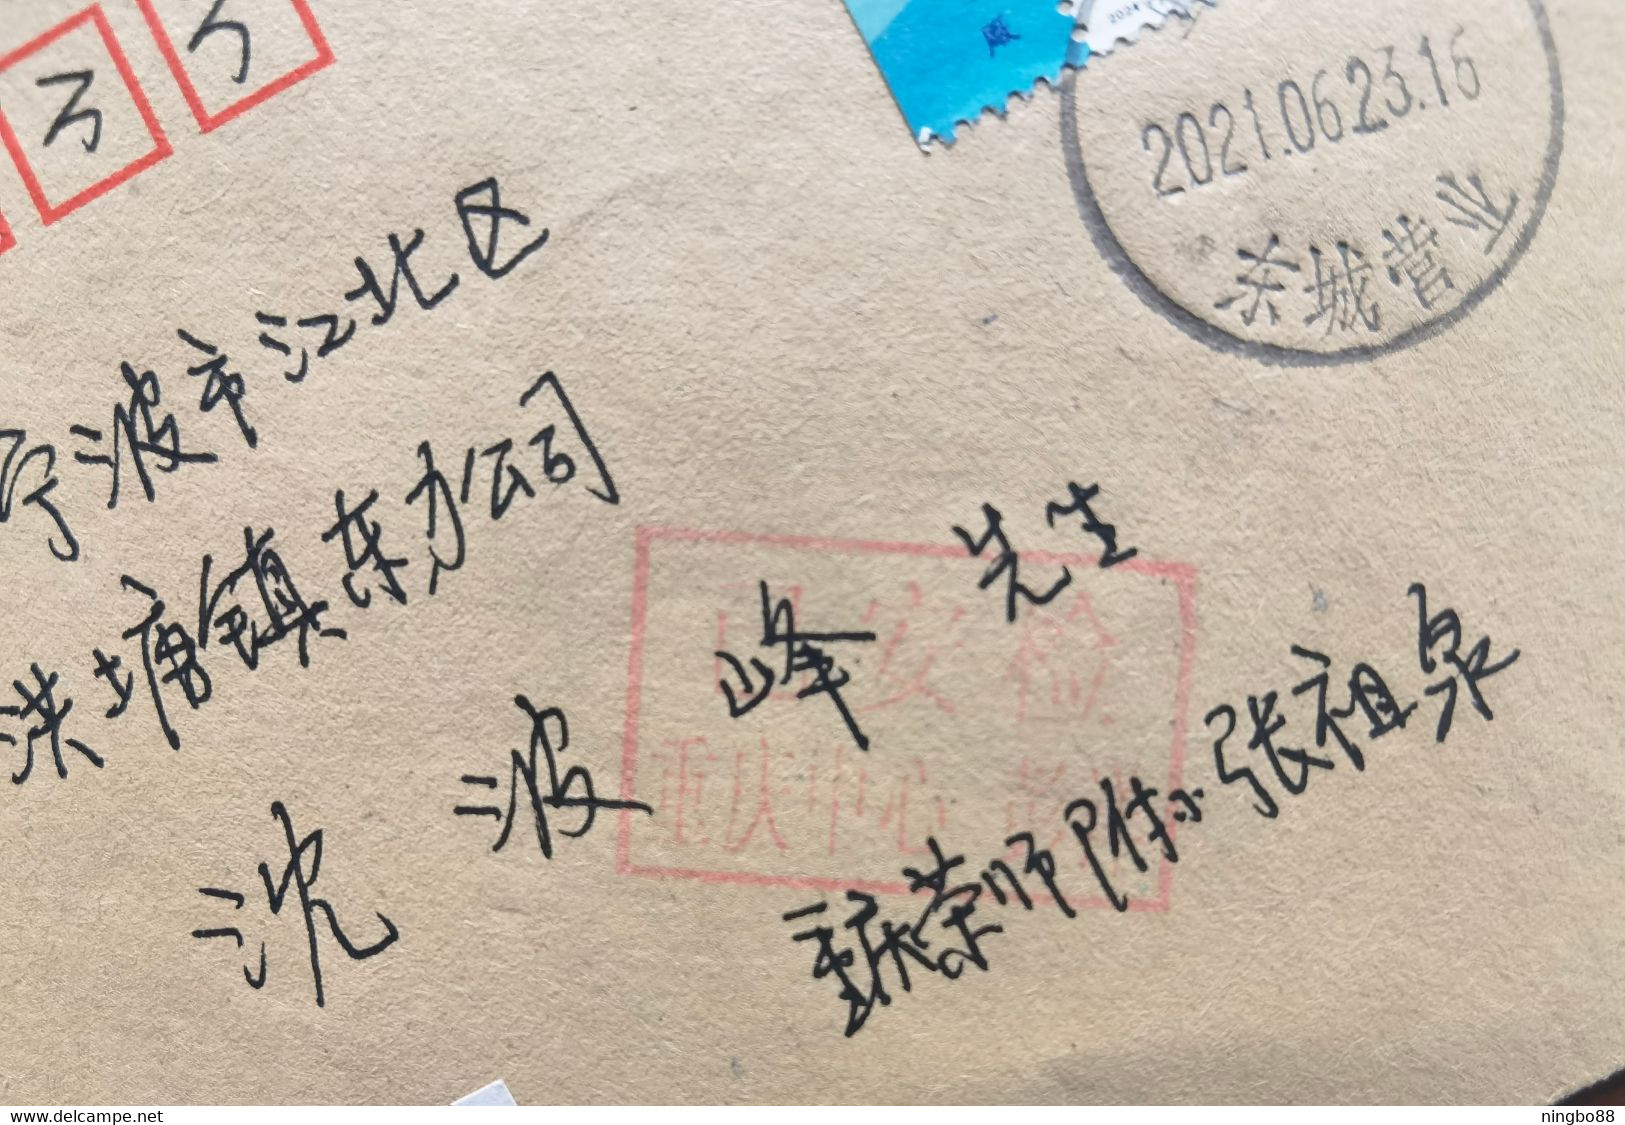 3 3
2021.06.23.16
荣城营业
宁波市江北区
洪塘镇东力公司
沈 波 峰 先生
已安检
重庆中心
重庆荣师附小张祖泉
www.delcampe.net
ningbo88